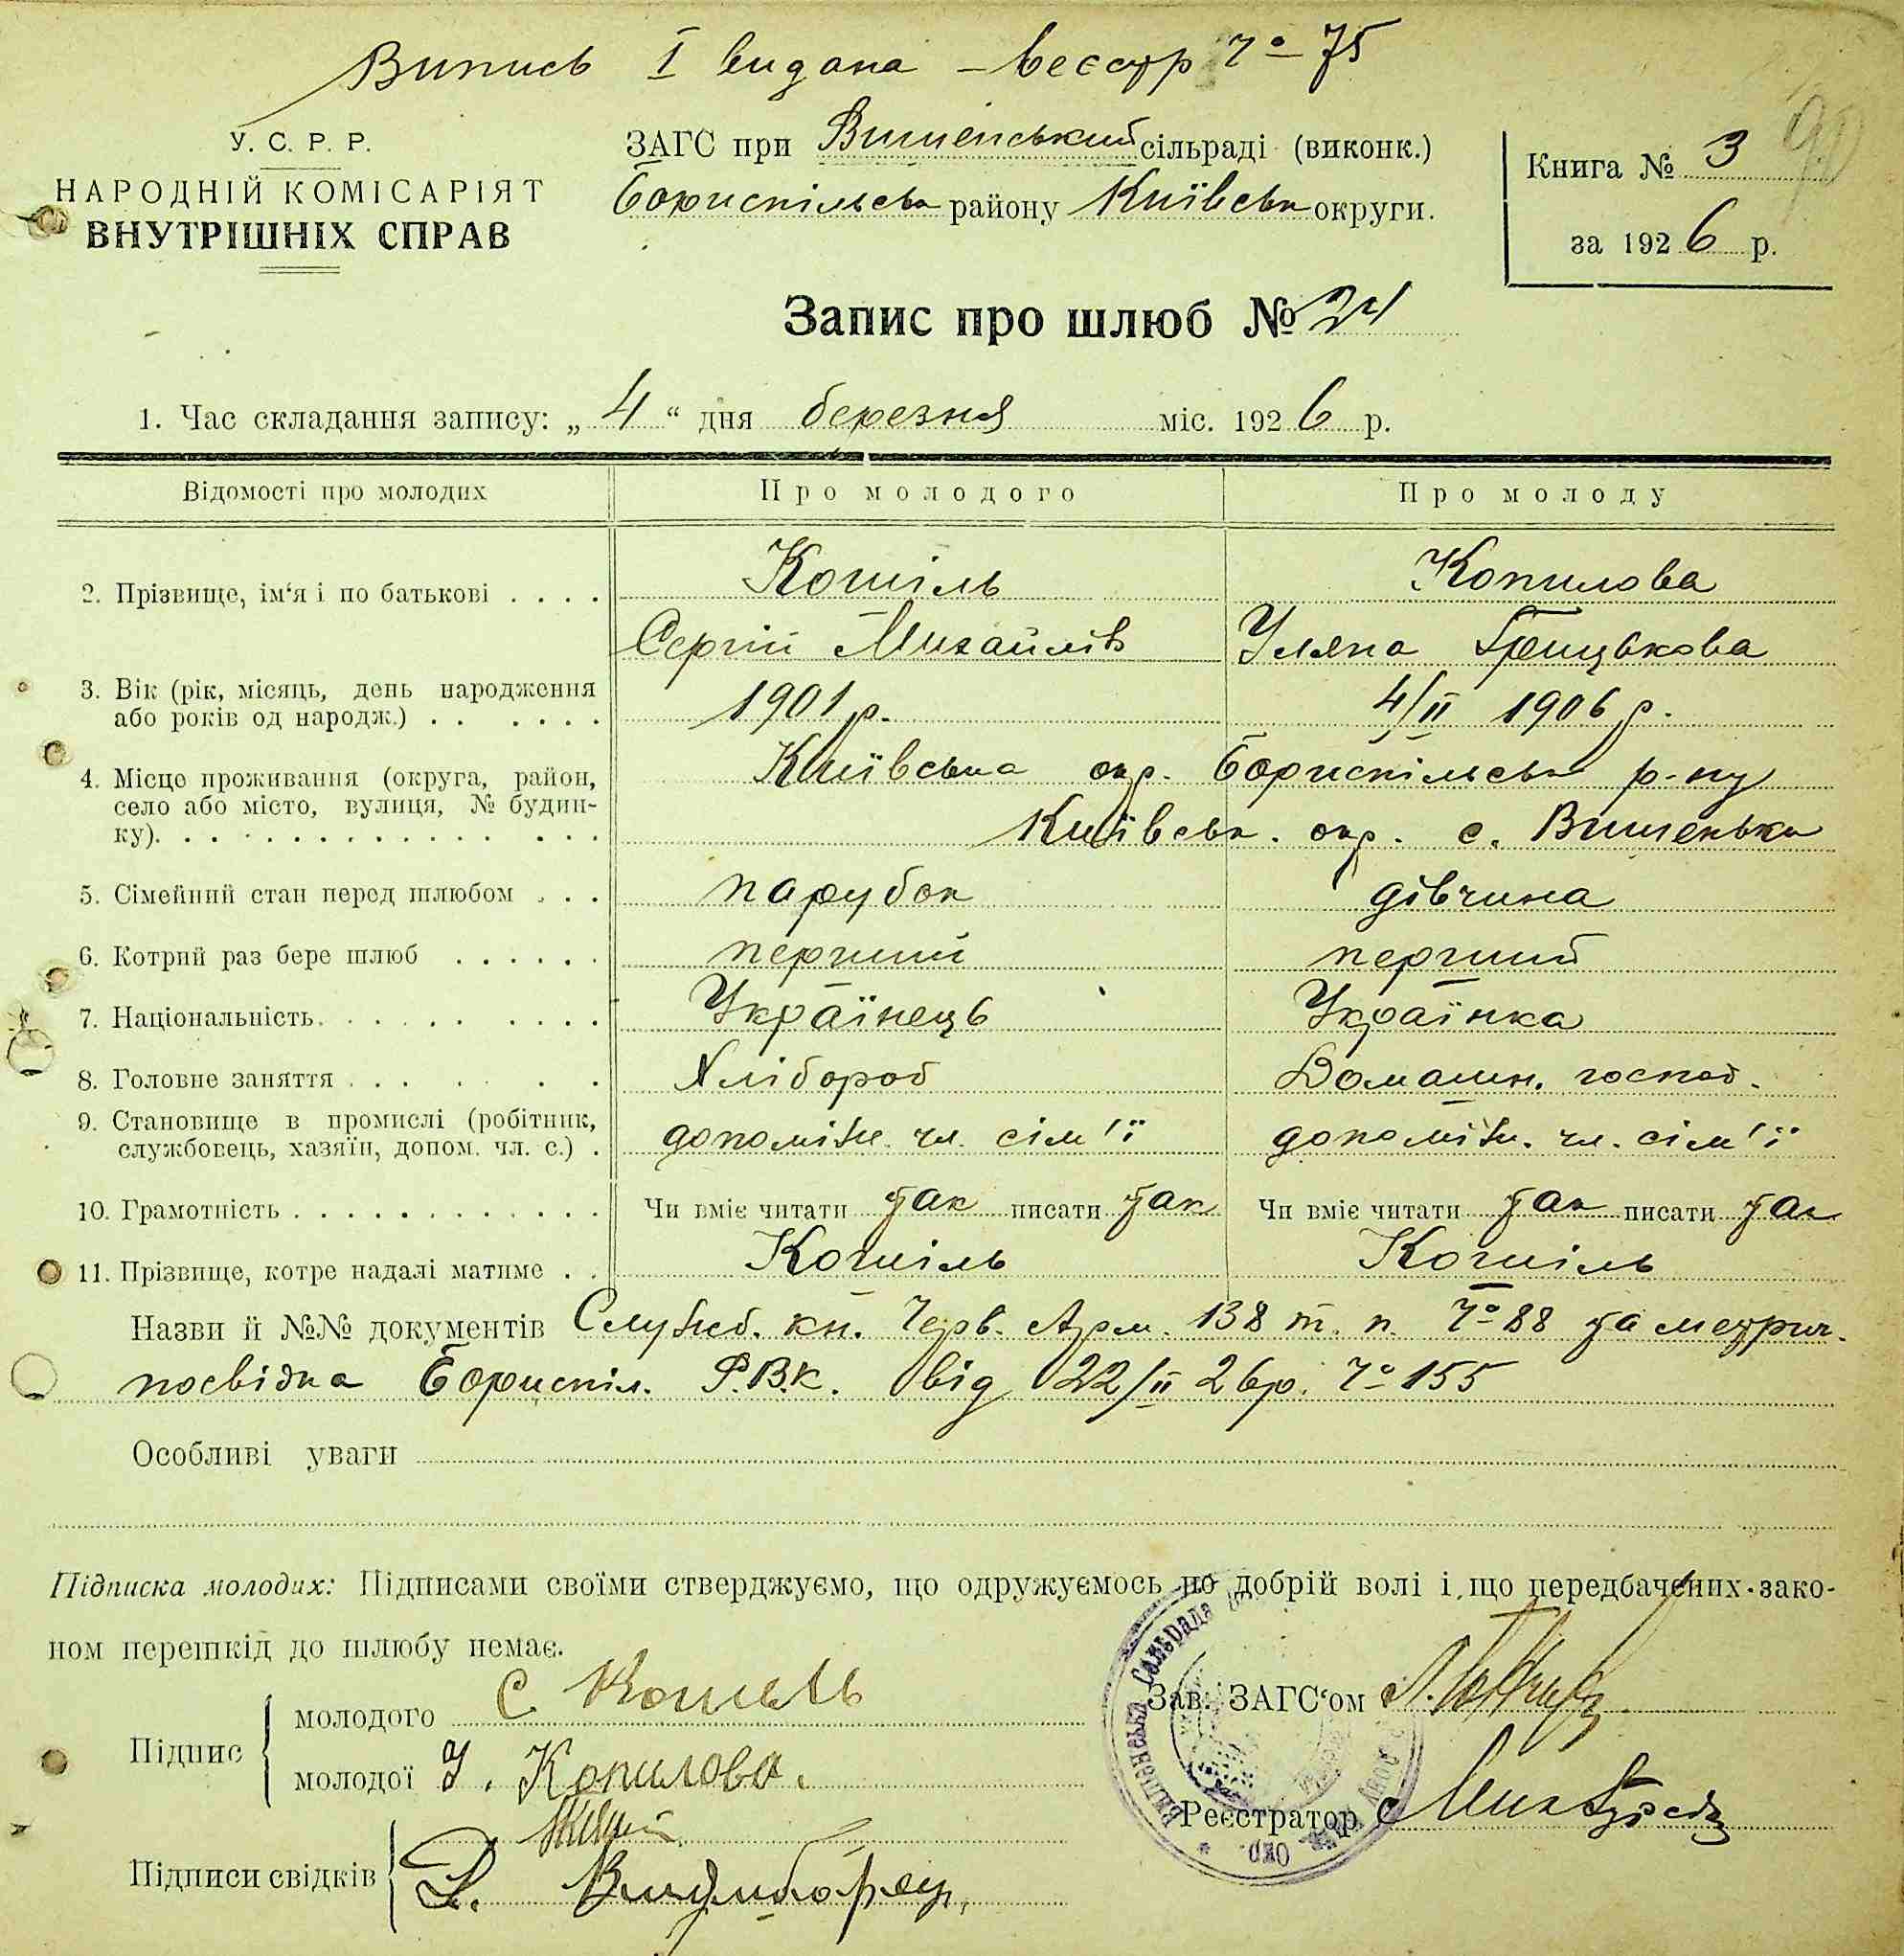 Випись I видана – реєстр № 75
У. С. Р. Р.
НАРОДНІЙ КОМІСАРІЯТ
ВНУТРІШНІХ СПРАВ
ЗАГС при Вишенський сільраді (виконк.)
Бориспільськ району Київськ округи.
Книга № 3
за 1926 р.
Запис про шлюб № 24
1. Час складання запису: „4“ дня березня міс. 1926 р.
Відомості про молодих Про молодого Про молоду
2. Прізвище, ім‘я і по батькові . . . . Кошіль Копилова
Сергій Михайлів Уляна Грицькова
3. Вік (рік, місяць, день народження
або років од народж.) . . . . . . 1901 р. 4/II 1906 р.
4. Місце проживання (округа, район,
село або місто, вулиця, № будин-
ку). Київська окр. Бориспільськ р-ну
Київськ. окр. с. Вишеньки
5. Сімейний стан перед шлюбом . . . парубок дівчина
6. Котрий раз бере шлюб . . . . . . перший перший
7. Національність. Українець Українка
8. Головне заняття Хлібороб Домашн. господ.
9. Становище в промислі (робітник,
службовець, хазяїн, допом. чл. с.) . допоміж. чл. сім'ї допоміж. чл. сім'ї
10. Грамотність Чи вміє читати так писати так Чи вміє читати так писати так
11. Прізвище, котре надалі матиме . . Кошіль Кошіль
Назви й №№ документів Служб. кн. Черв. Арм. 138 т. п. № 88 та метрич.
посвідка Бориспіл. Р.В.К. від 22/II 26р. № 155
Особливі уваги
Підписка молодих: Підписами своїми стверджуємо, що одружуємось по добрій волі і що передбачених зако-
ном перешкід до шлюбу немає.
Підпис
молодого С Кошель
молодої У. Копилова.
Підписи свідків
Д.
Зав. ЗАГС‘ом
Реєстратор
Вишенська Сільрада
Окр.